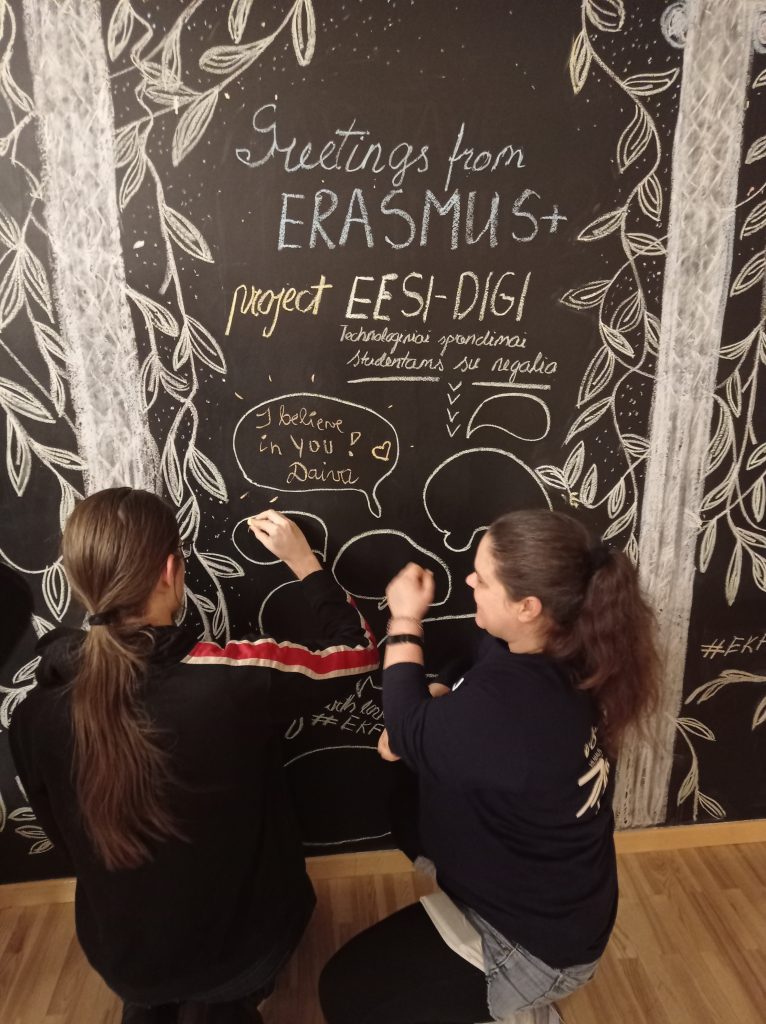 Greetings from
ERASMUS+
project EESI-DIGI
Technologiniai sprendimai
studentams su negalia
I believe
in YOU!
Daiva
#EKF
#EKF